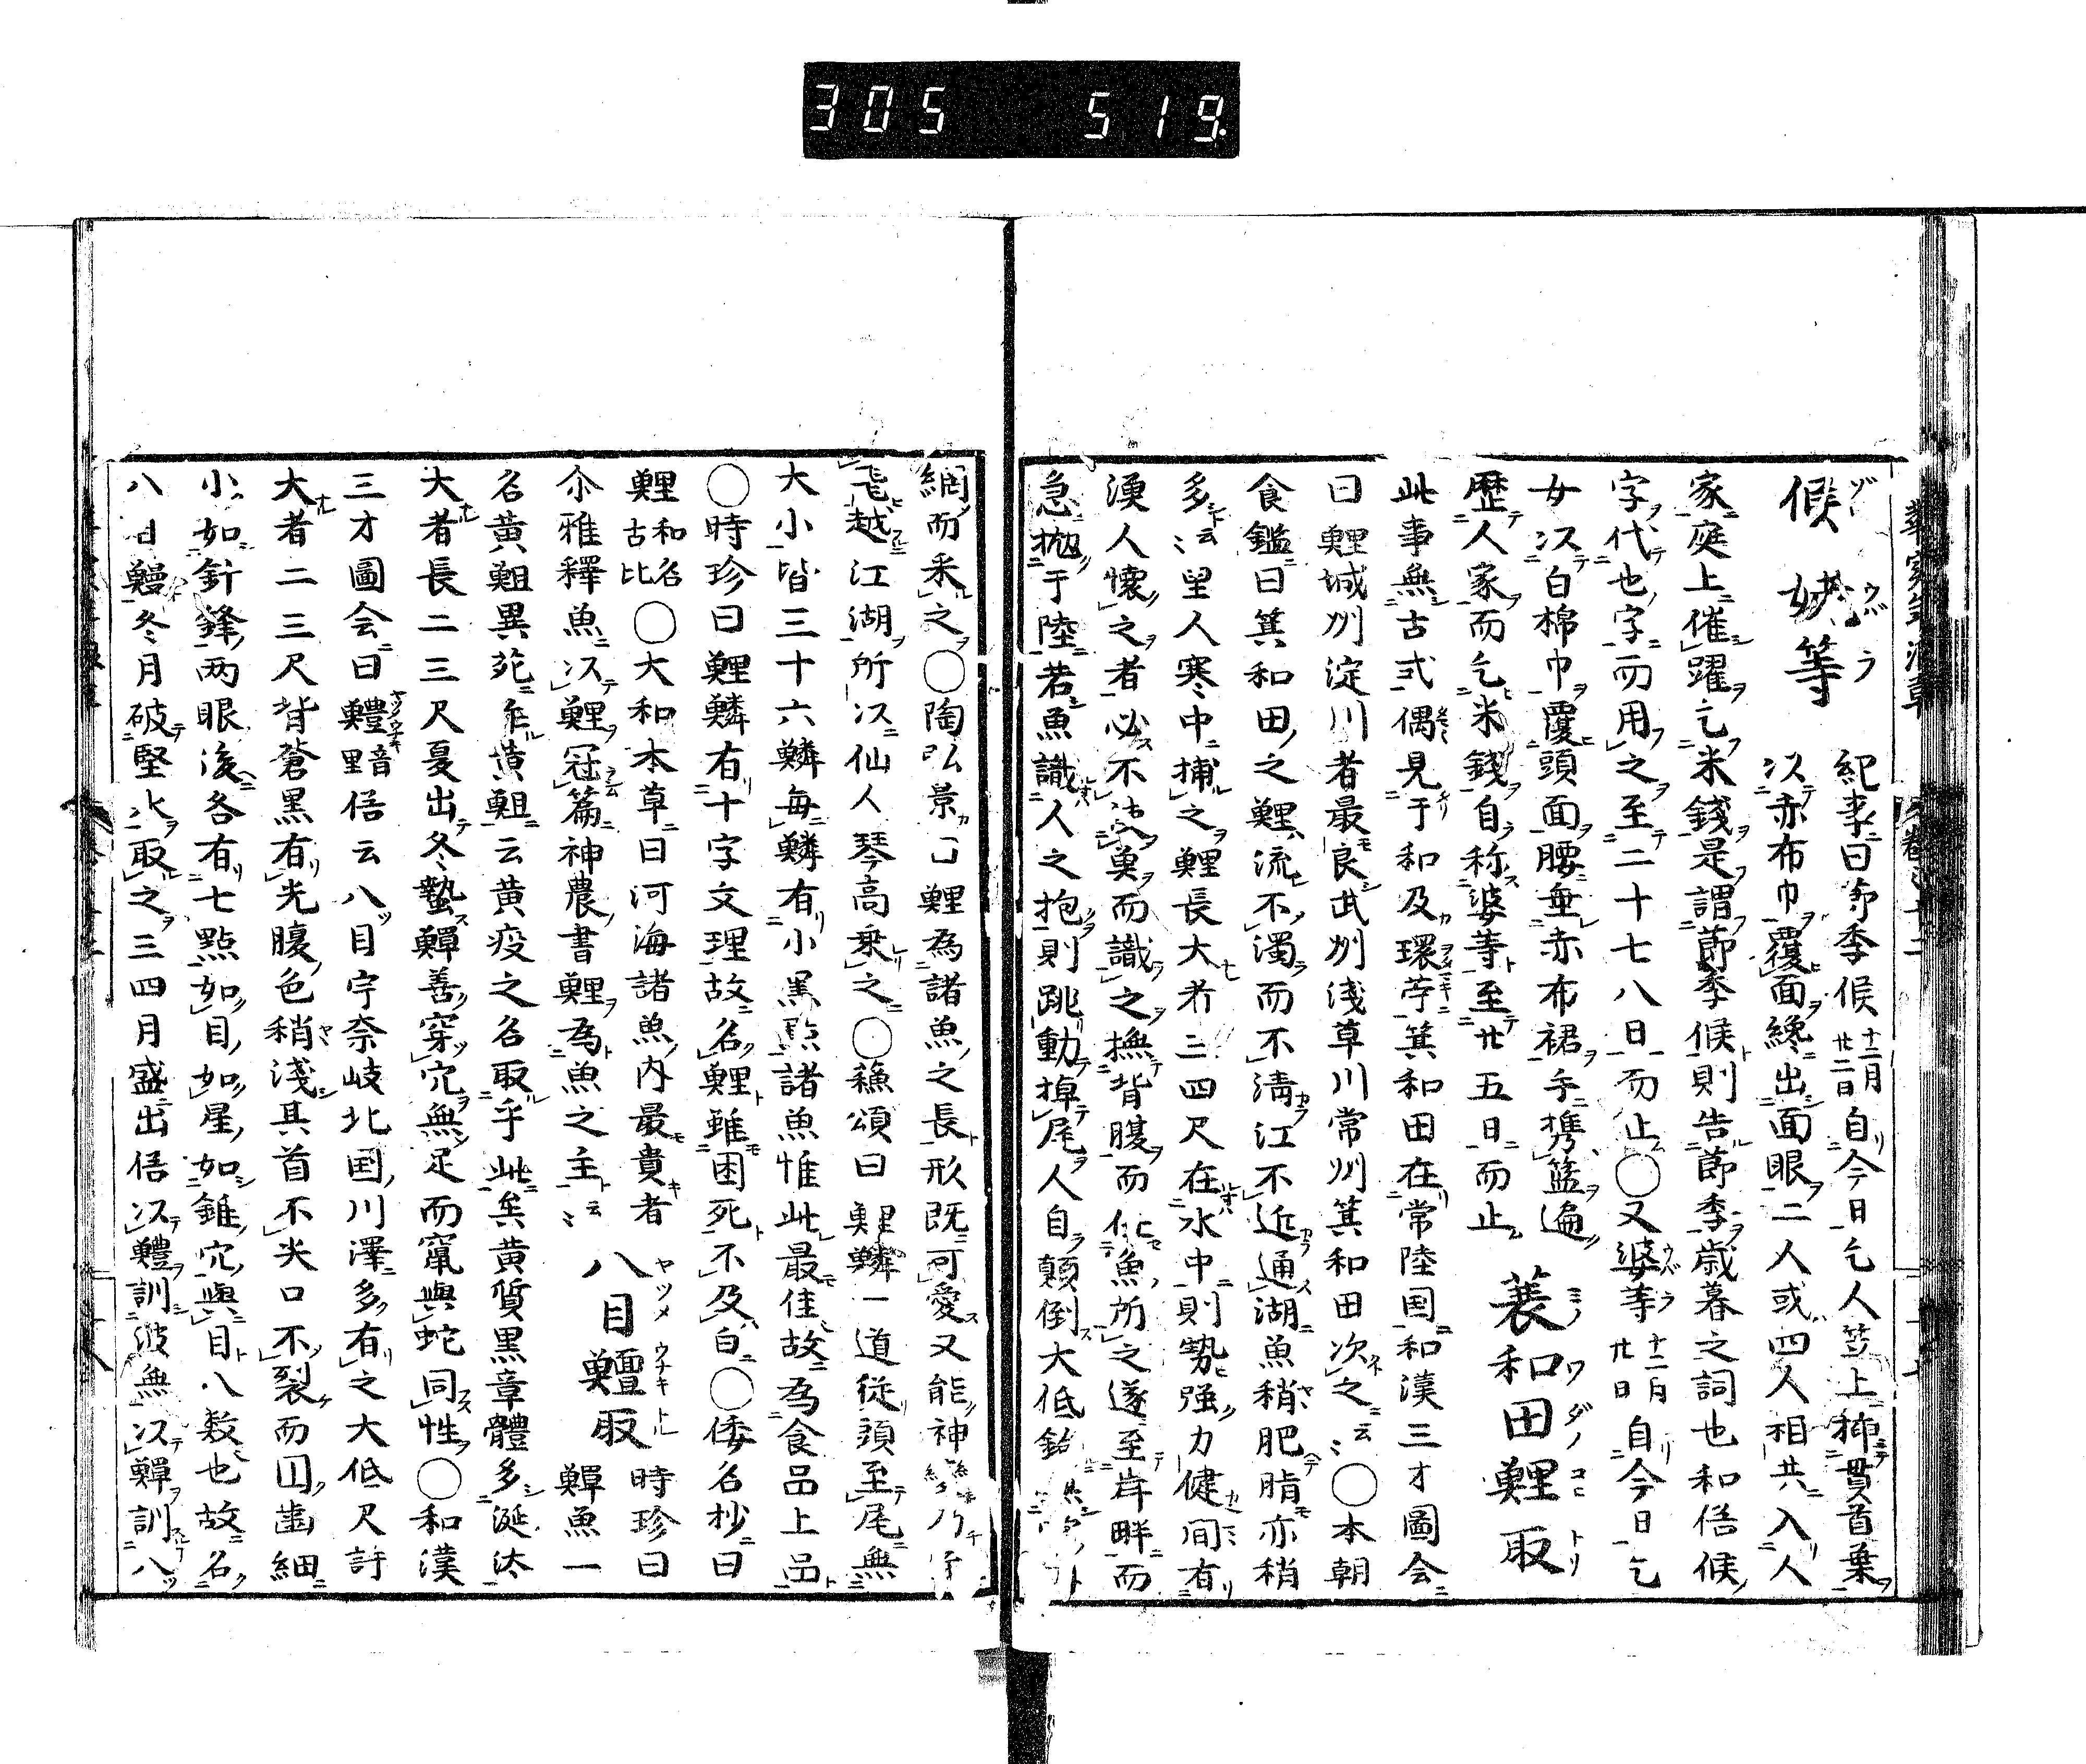 305 519.
候 ゾ 姥等 ウバラ 紀事曰節季候十二月廿二日自今日乞人笠上挿貫首葉
以赤布巾覆面纔出面眼二人或四人相共入人
家庭上催躍乞米錢是謂節季候則告節季歳暮之詞也和俗候
字代也字而用之至二十七八日而止○又婆等十二月廿日自今日乞
女以白棉巾覆頭面腰垂赤布裙手携籃遍
歴人家而乞米錢自称婆等至廿五日而止 蓑和田鯉取 ミノワダノコヒトリ
此事無古式偶見于和及環苧箕和田在常陸国和漢三才圖会
曰鯉城州淀川者最良武州浅草川常州箕和田次之云々○本朝
食鑑曰箕和田之鯉流不濁而不清江不近通湖魚稍肥脂亦稍
多云々里人寒中捕之鯉長大者三四尺在水中則勢強力健間有
漁人懐之者必不 魚而識之撫背腹而化魚所之遂至岸畔而
急拋于陸若魚識人之抱則跳動掉尾人自顛倒大低
網而釆之○陶弘景曰鯉為諸魚之長形既可愛又能神
飛越江湖所以仙人琴高乗之○蘓頌曰鯉鱗一道従頭至尾無
大小皆三十六鱗毎鱗有小黒點諸魚惟此最佳故為食品上品
○時珍曰鯉鱗有十字文理故名鯉雖困死不及白○倭名抄曰
鯉和名古比○大和本草曰河海諸魚内最貴者 八目鱣取 ヤツメウナキトル 時珍曰
尒雅釋魚以鯉冠篇神農書鯉為魚之主云々 鱓魚一
名黄䱉異苑作黄䱉云黄疫之名取乎此矣黄質黒章體多涎沫
大者長二三尺夏出冬蟄鱓善穿穴無足而竄與蛇同性○和漢
三才圖会曰鱧音里俗云八目宇奈岐北国川澤多有之大低尺許
大者二三尺背蒼黒有光腹色稍淺其首不尖口不裂而囗歯細
小如針鋒两眼後各有七點如目如星如錐穴與目八数也故名
八目鰻冬月破堅氷取之三四月盛出俗以鱧訓波無以鱓訓八